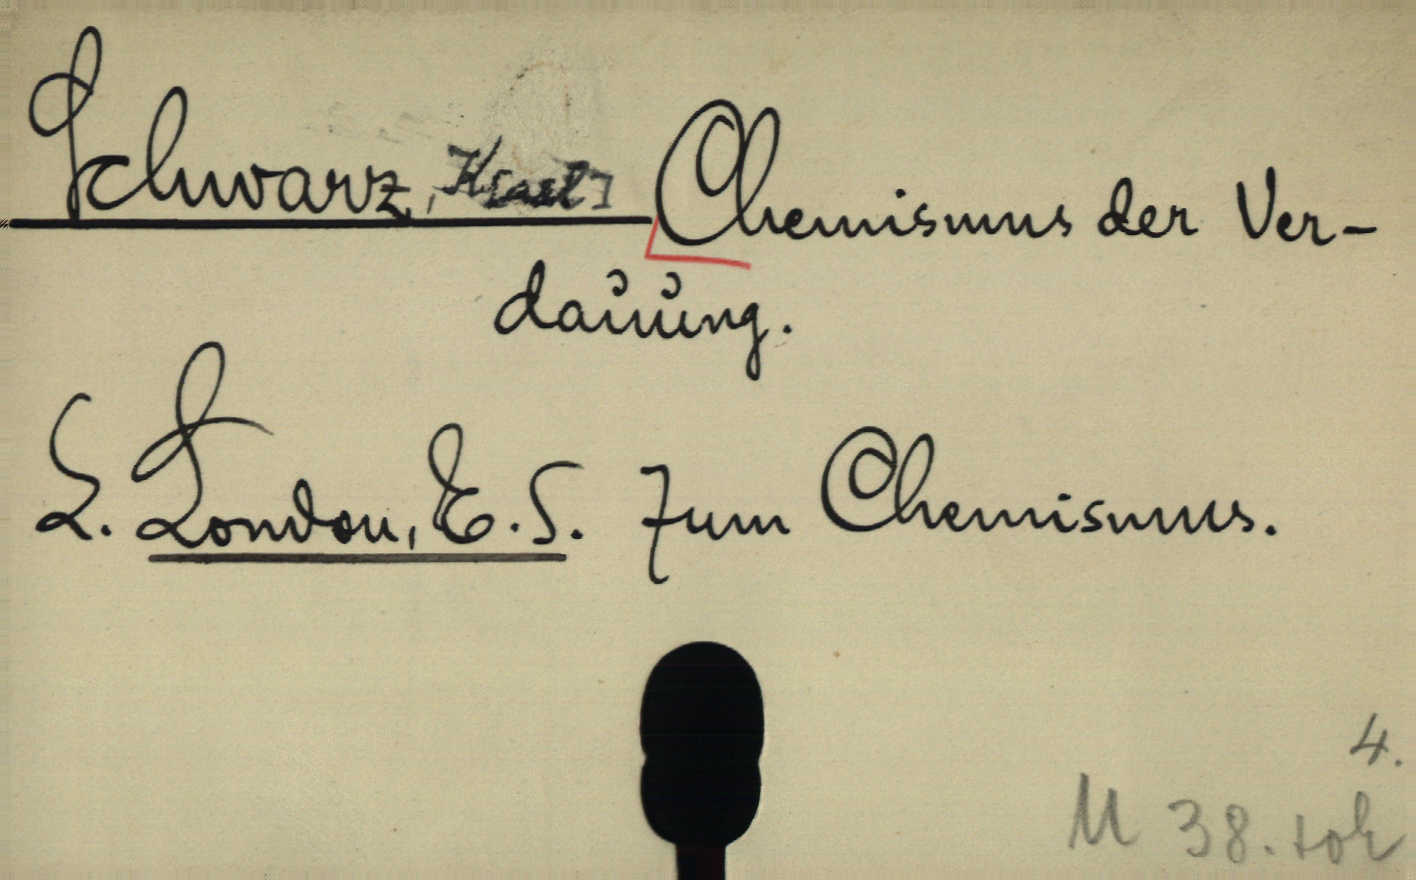 Schwarz, K[arl] Chemismus der Ver-
dauung.
S. London, E. S. Zum Chemismus.
4.
M 38.